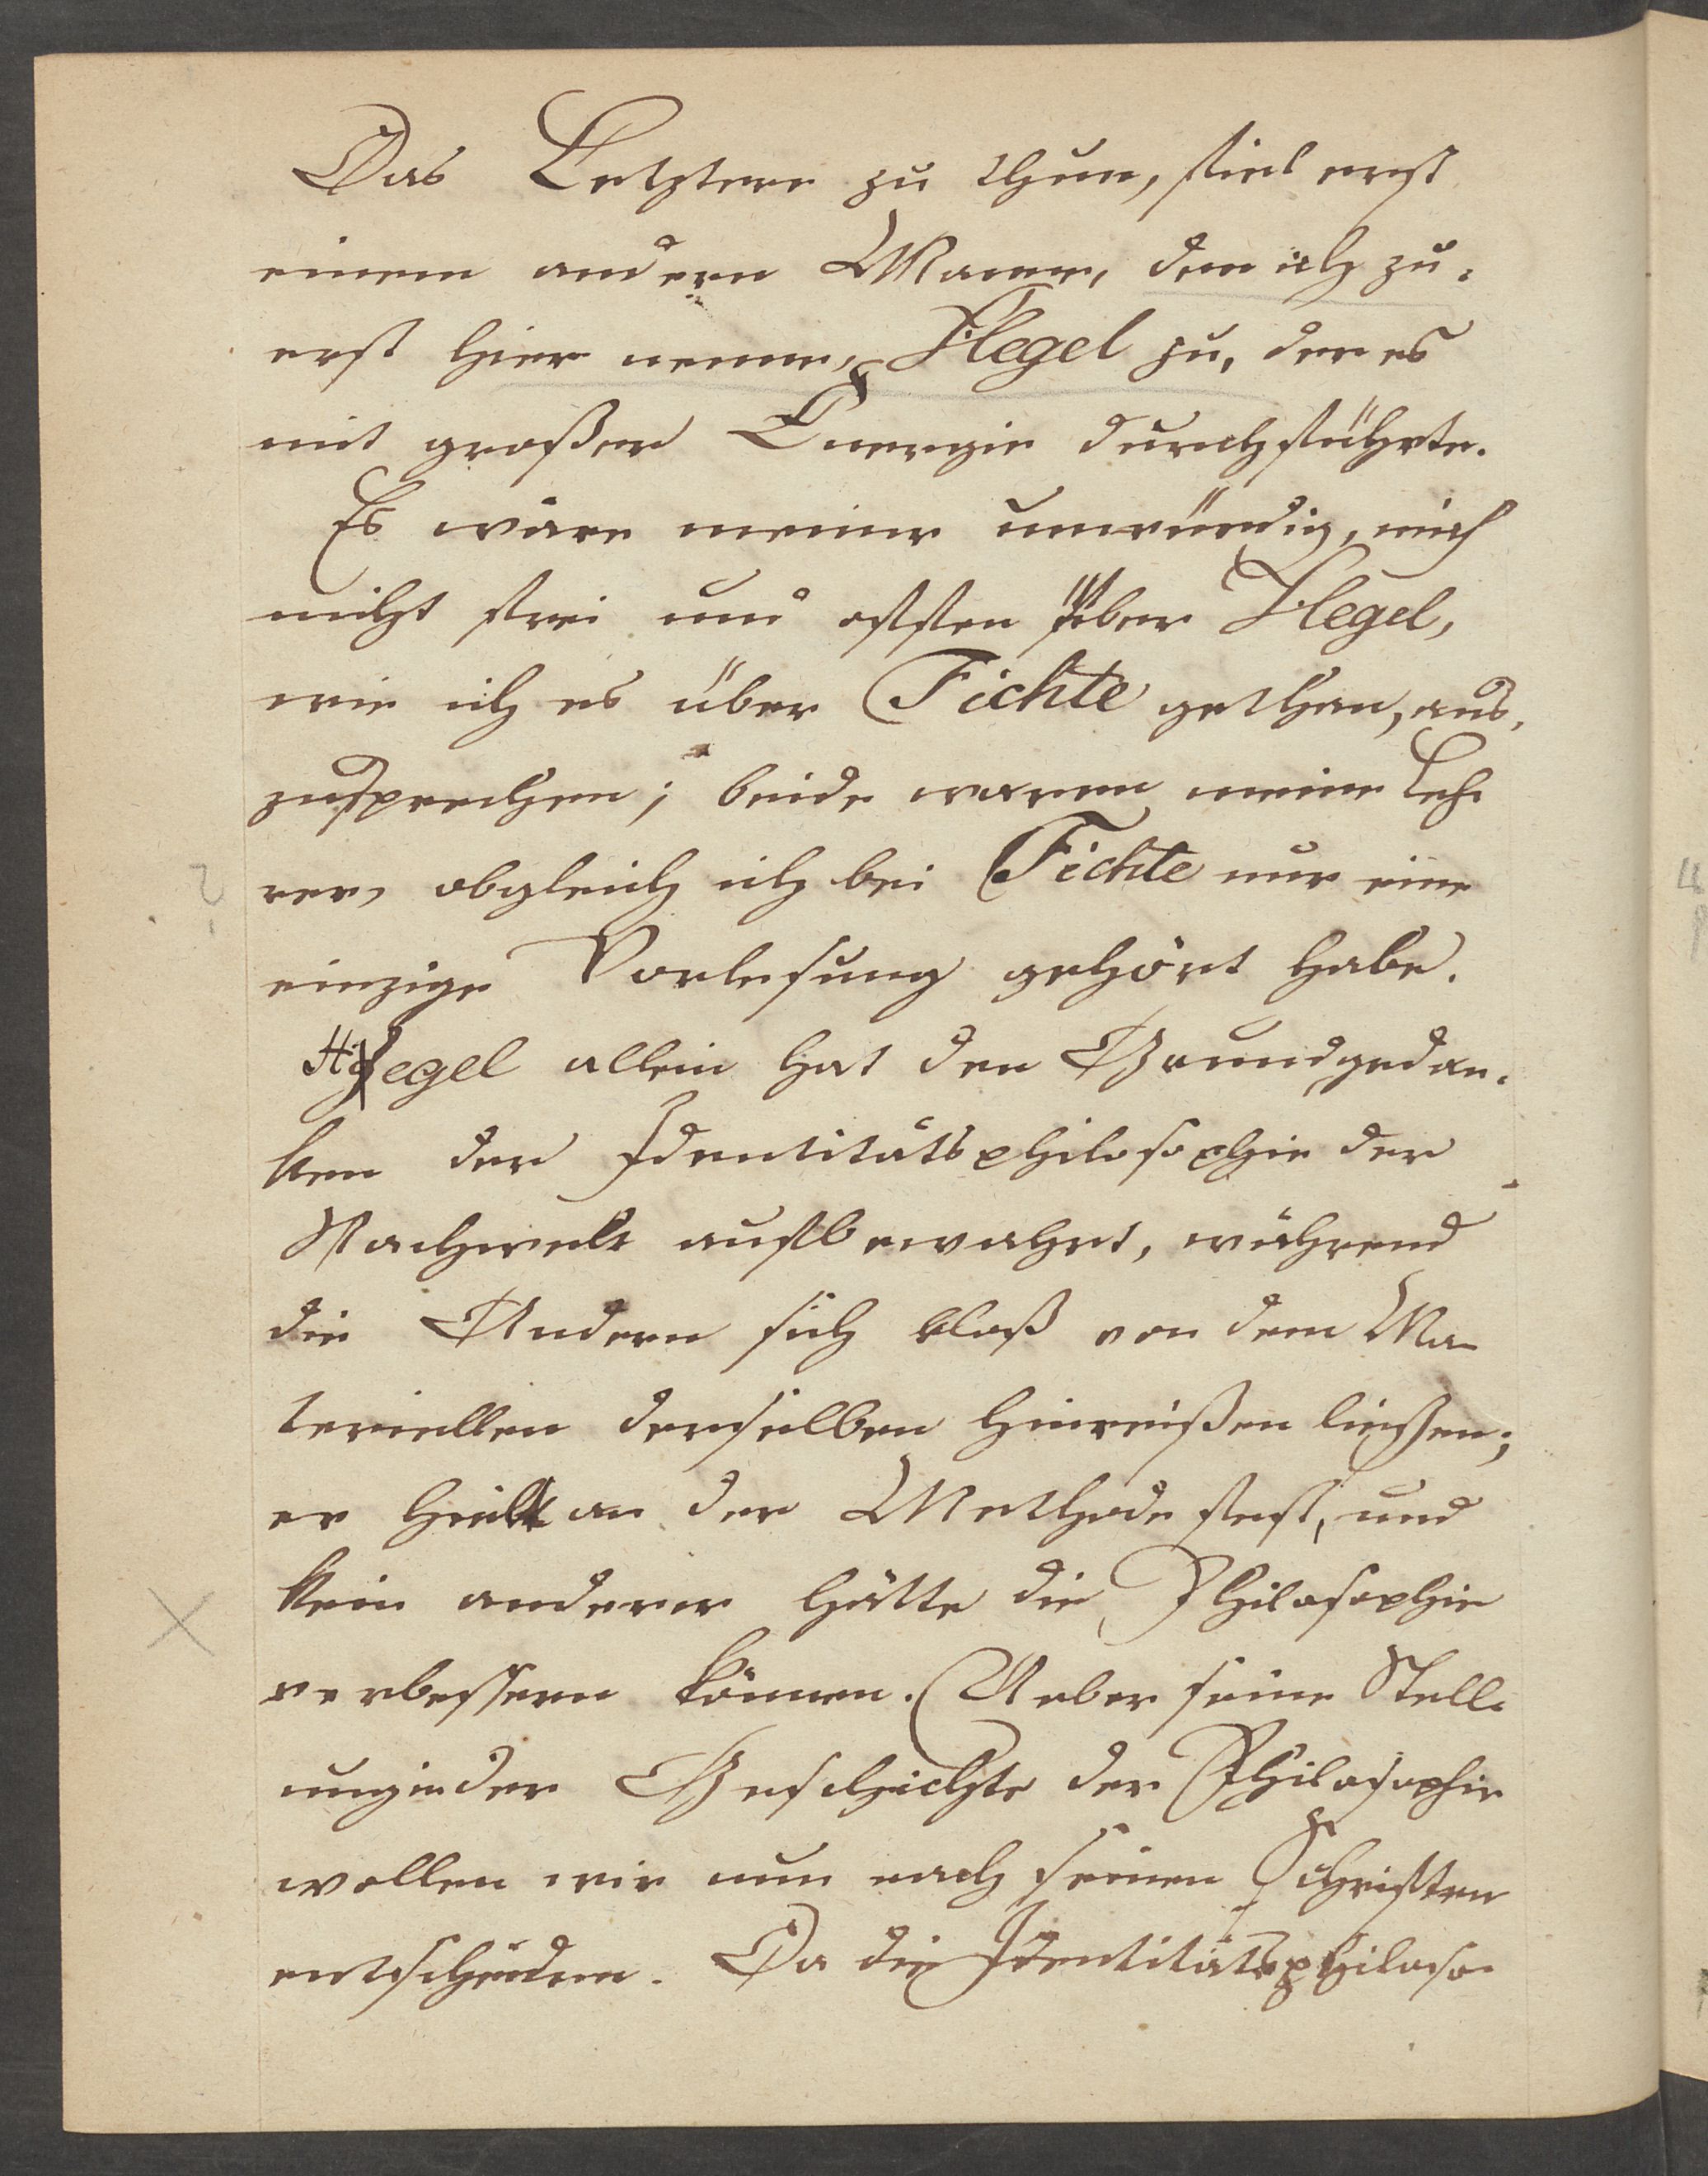 Das Letztere zu thun, fiel erst
einem andern Manne, den ich zu-
erst hier nenne, Hegel zu, der es
mit großer Energie durchführte.
Es wäre meiner unwürdig, mich
nicht frei und offen über Hegel,
wie ich es über Fichte gethan, aus-
zusprechen; beide waren meine Leh-
rer, obgleich ich bei Fichte nur eine
einzige Vorlesung gehört habe.
Hegel allein hat den Grundgedan-
ken der Identitätsphilosophie der
Nachwelt aufbewahrt, während
die Andern sich bloß von dem Ma-
teriellen derselben hinreißen ließen;
er hielt an der Methode fest, und
kein anderer hätte die Philosophie
verbessern können. Ueber seine Stell-
ung in der Geschichte der Philosophie
wollen wir nun nach seinen Schriften
entscheiden. Da die Identitätsphiloso-